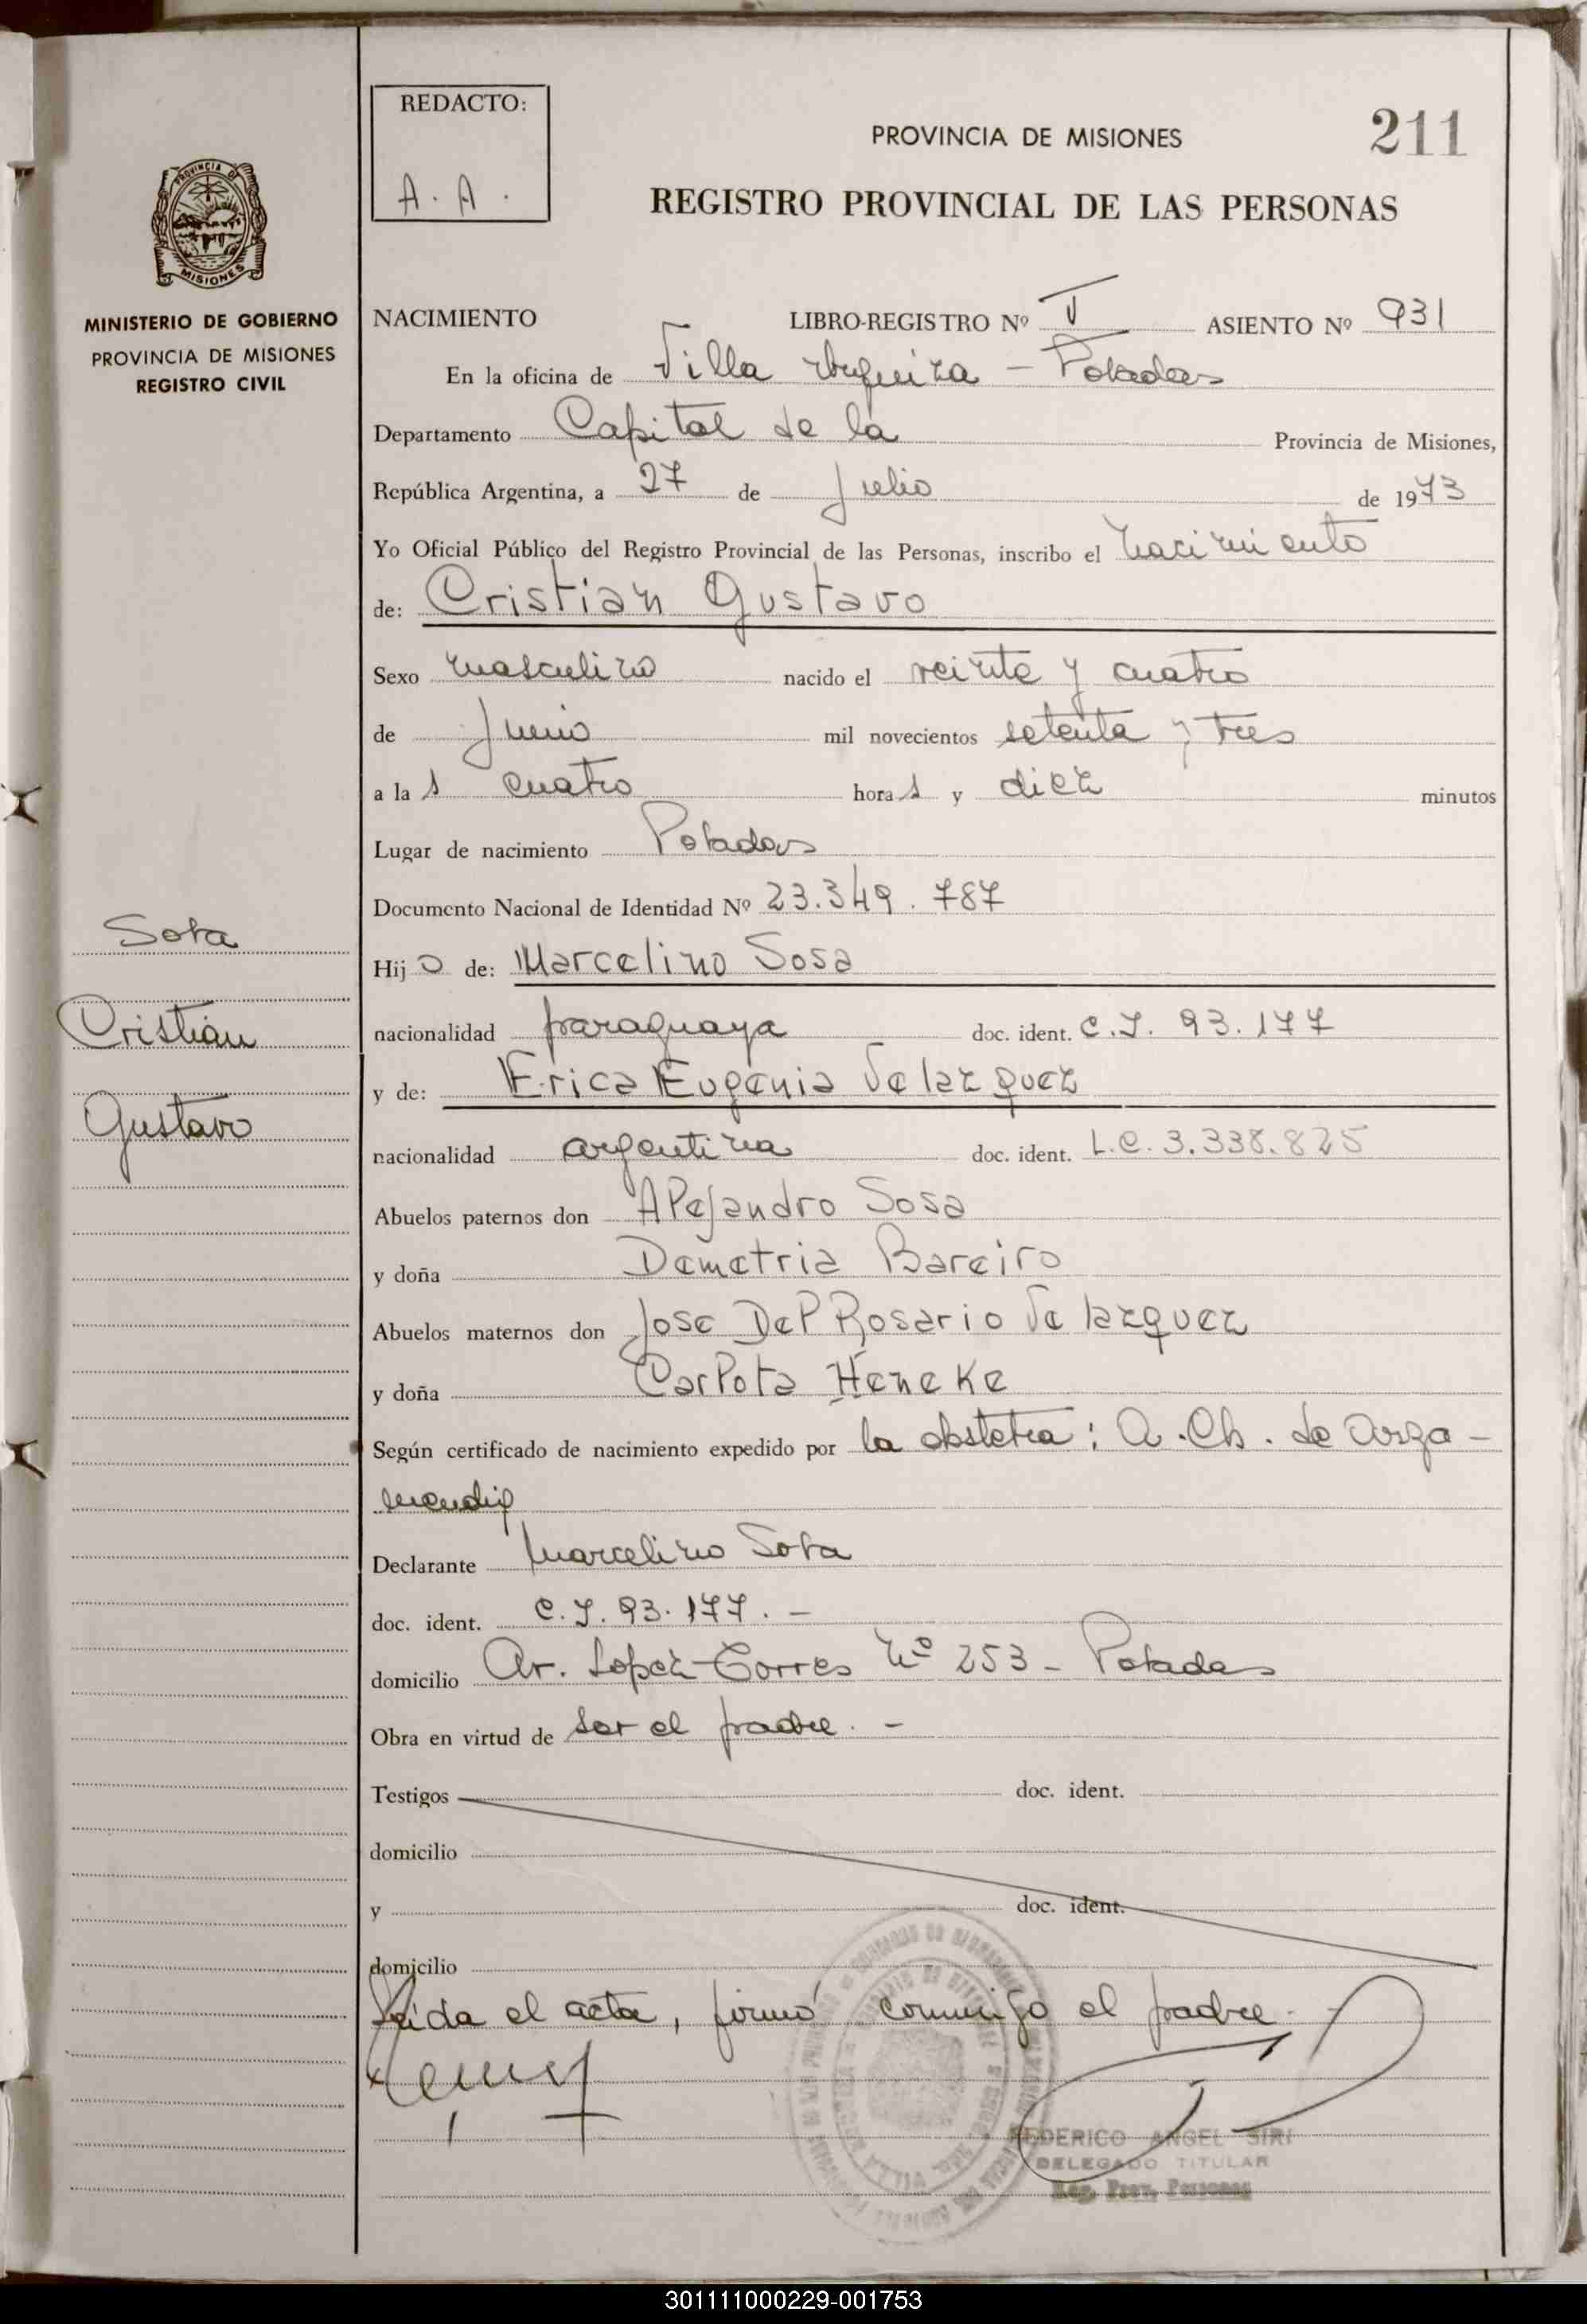 REDACTO:
A. A.
PROVINCIA DE MISIONES
211
REGISTRO PROVINCIAL DE LAS PERSONAS
PROVINCIA DE
MISIONES
MINISTERIO DE GOBIERNO
PROVINCIA DE MISIONES
REGISTRO CIVIL
NACIMIENTO LIBRO-REGISTRO Nº V ASIENTO Nº 931
En la oficina de Villa Urquiza - Posadas
Departamento Capital de la Provincia de Misiones,
República Argentina, a 27 de Julio de 1973
Yo Oficial Público del Registro Provincial de las Personas, inscribo el nacimiento
de: Cristian Gustavo
Sexo masculino nacido el veinte y cuatro
de Junio mil novecientos setenta y tres
a la s cuatro hora s y diez minutos
Lugar de nacimiento Posadas
Documento Nacional de Identidad Nº 23.349.787
Sosa
Cristian
Gustavo
Hij o de: Marcelino Sosa
nacionalidad paraguaya doc. ident. C.I. 93.177
y de: Erica Eugenia Velazquez
nacionalidad argentina doc. ident. L.C. 3.338.825
Abuelos paternos don Alejandro Sosa
y doña Demetria Bareiro
Abuelos maternos don Jose Del Rosario Velazquez
y doña Carlota Heneke
Según certificado de nacimiento expedido por la obstetra: A. Ch. de Arza-
mendia
Declarante Marcelino Sosa
doc. ident. C.I. 93.177. -
domicilio Av. Lopez Torres Nº 253 - Posadas
Obra en virtud de ser el padre. -
Testigos doc. ident.
domicilio
y doc. ident.
domicilio
Leída el acta, firmó conmigo el padre. -
FEDERICO ANGEL SIRI
DELEGADO TITULAR
Reg. Prov. Personas
301111000229-001753